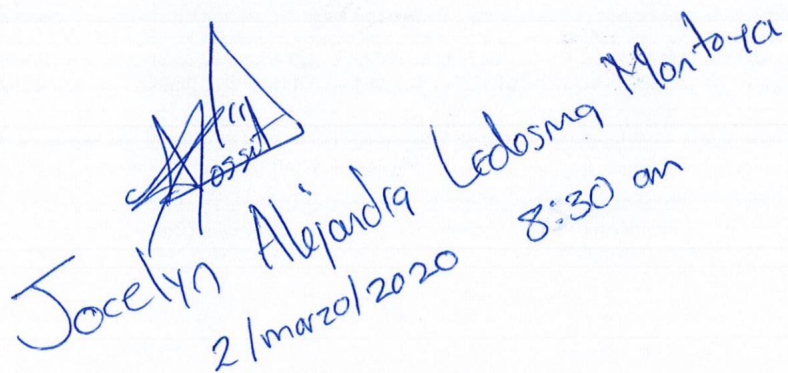 Jocelyn Alejandra Ledesma Montoya
2/marzo/2020 8:30 am